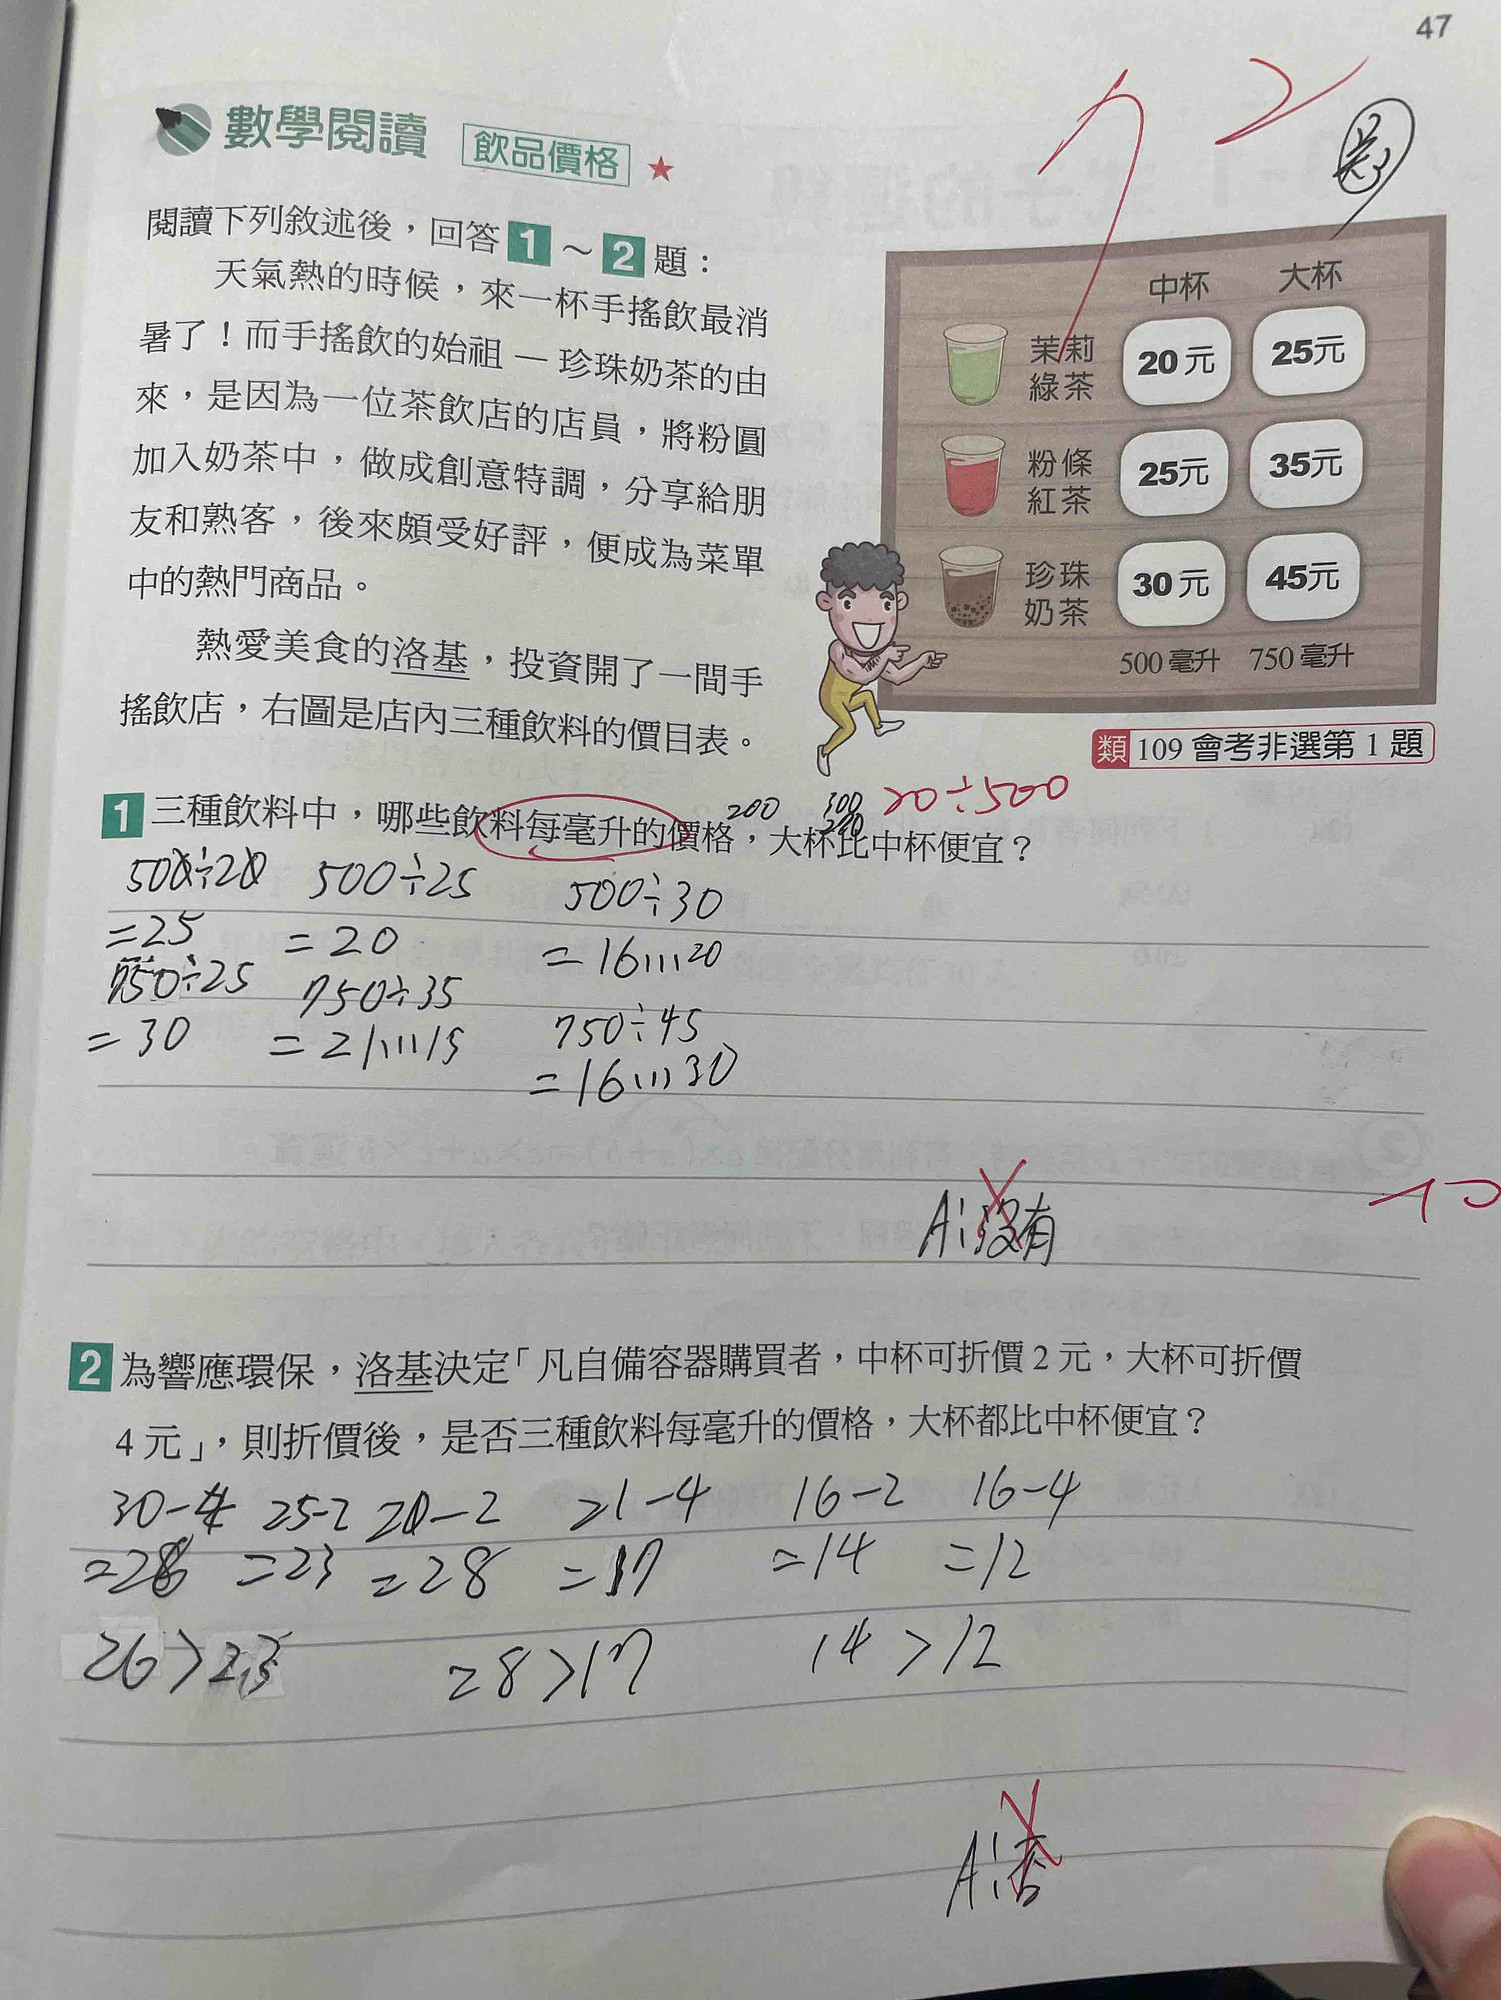 47
數學閱讀 飲品價格
72
閱讀下列敘述後，回答1～2題：
天氣熱的時候，來一杯手搖飲最消
暑了！而手搖飲的始祖—珍珠奶茶的由
來，是因為一位茶飲店的店員，將粉圓
加入奶茶中，做成創意特調，分享給朋
友和熟客，後來頗受好評，便成為菜單
中的熱門商品。
熱愛美食的洛基，投資開了一間手
搖飲店，右圖是店內三種飲料的價目表。
中杯 大杯
茉莉綠茶 20元 25元
粉條紅茶 25元 35元
珍珠奶茶 30元 45元
500毫升 750毫升
類 109會考非選第1題
200 300 20÷500
1 三種飲料中，哪些飲料每毫升的價格，大杯比中杯便宜？
500÷20 500÷25 500÷30
=25 =20 =16...20
750÷25 750÷35 750÷45
=30 =21...15 =16...30
A:沒有
-10
2 為響應環保，洛基決定「凡自備容器購買者，中杯可折價2元，大杯可折價
4元」，則折價後，是否三種飲料每毫升的價格，大杯都比中杯便宜？
30-4 25-2 20-2 21-4 16-2 16-4
=26 =23 =28 =17 =14 =12
26>23 28>17 14>12
A:否